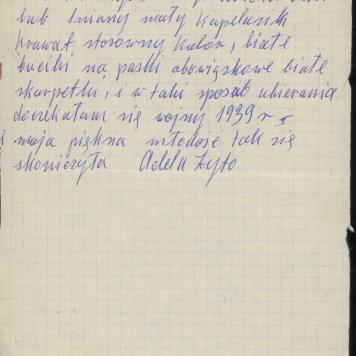 lub lniany mały kapelusik
krawat stosowny kolor, białe
buciki na paski obowiązkowe białe
skarpetki, i w taki sposób ubierania
doczekałam się wojny 1939 r I
moja piękna młodość tak się
skończyła Adela Żyto